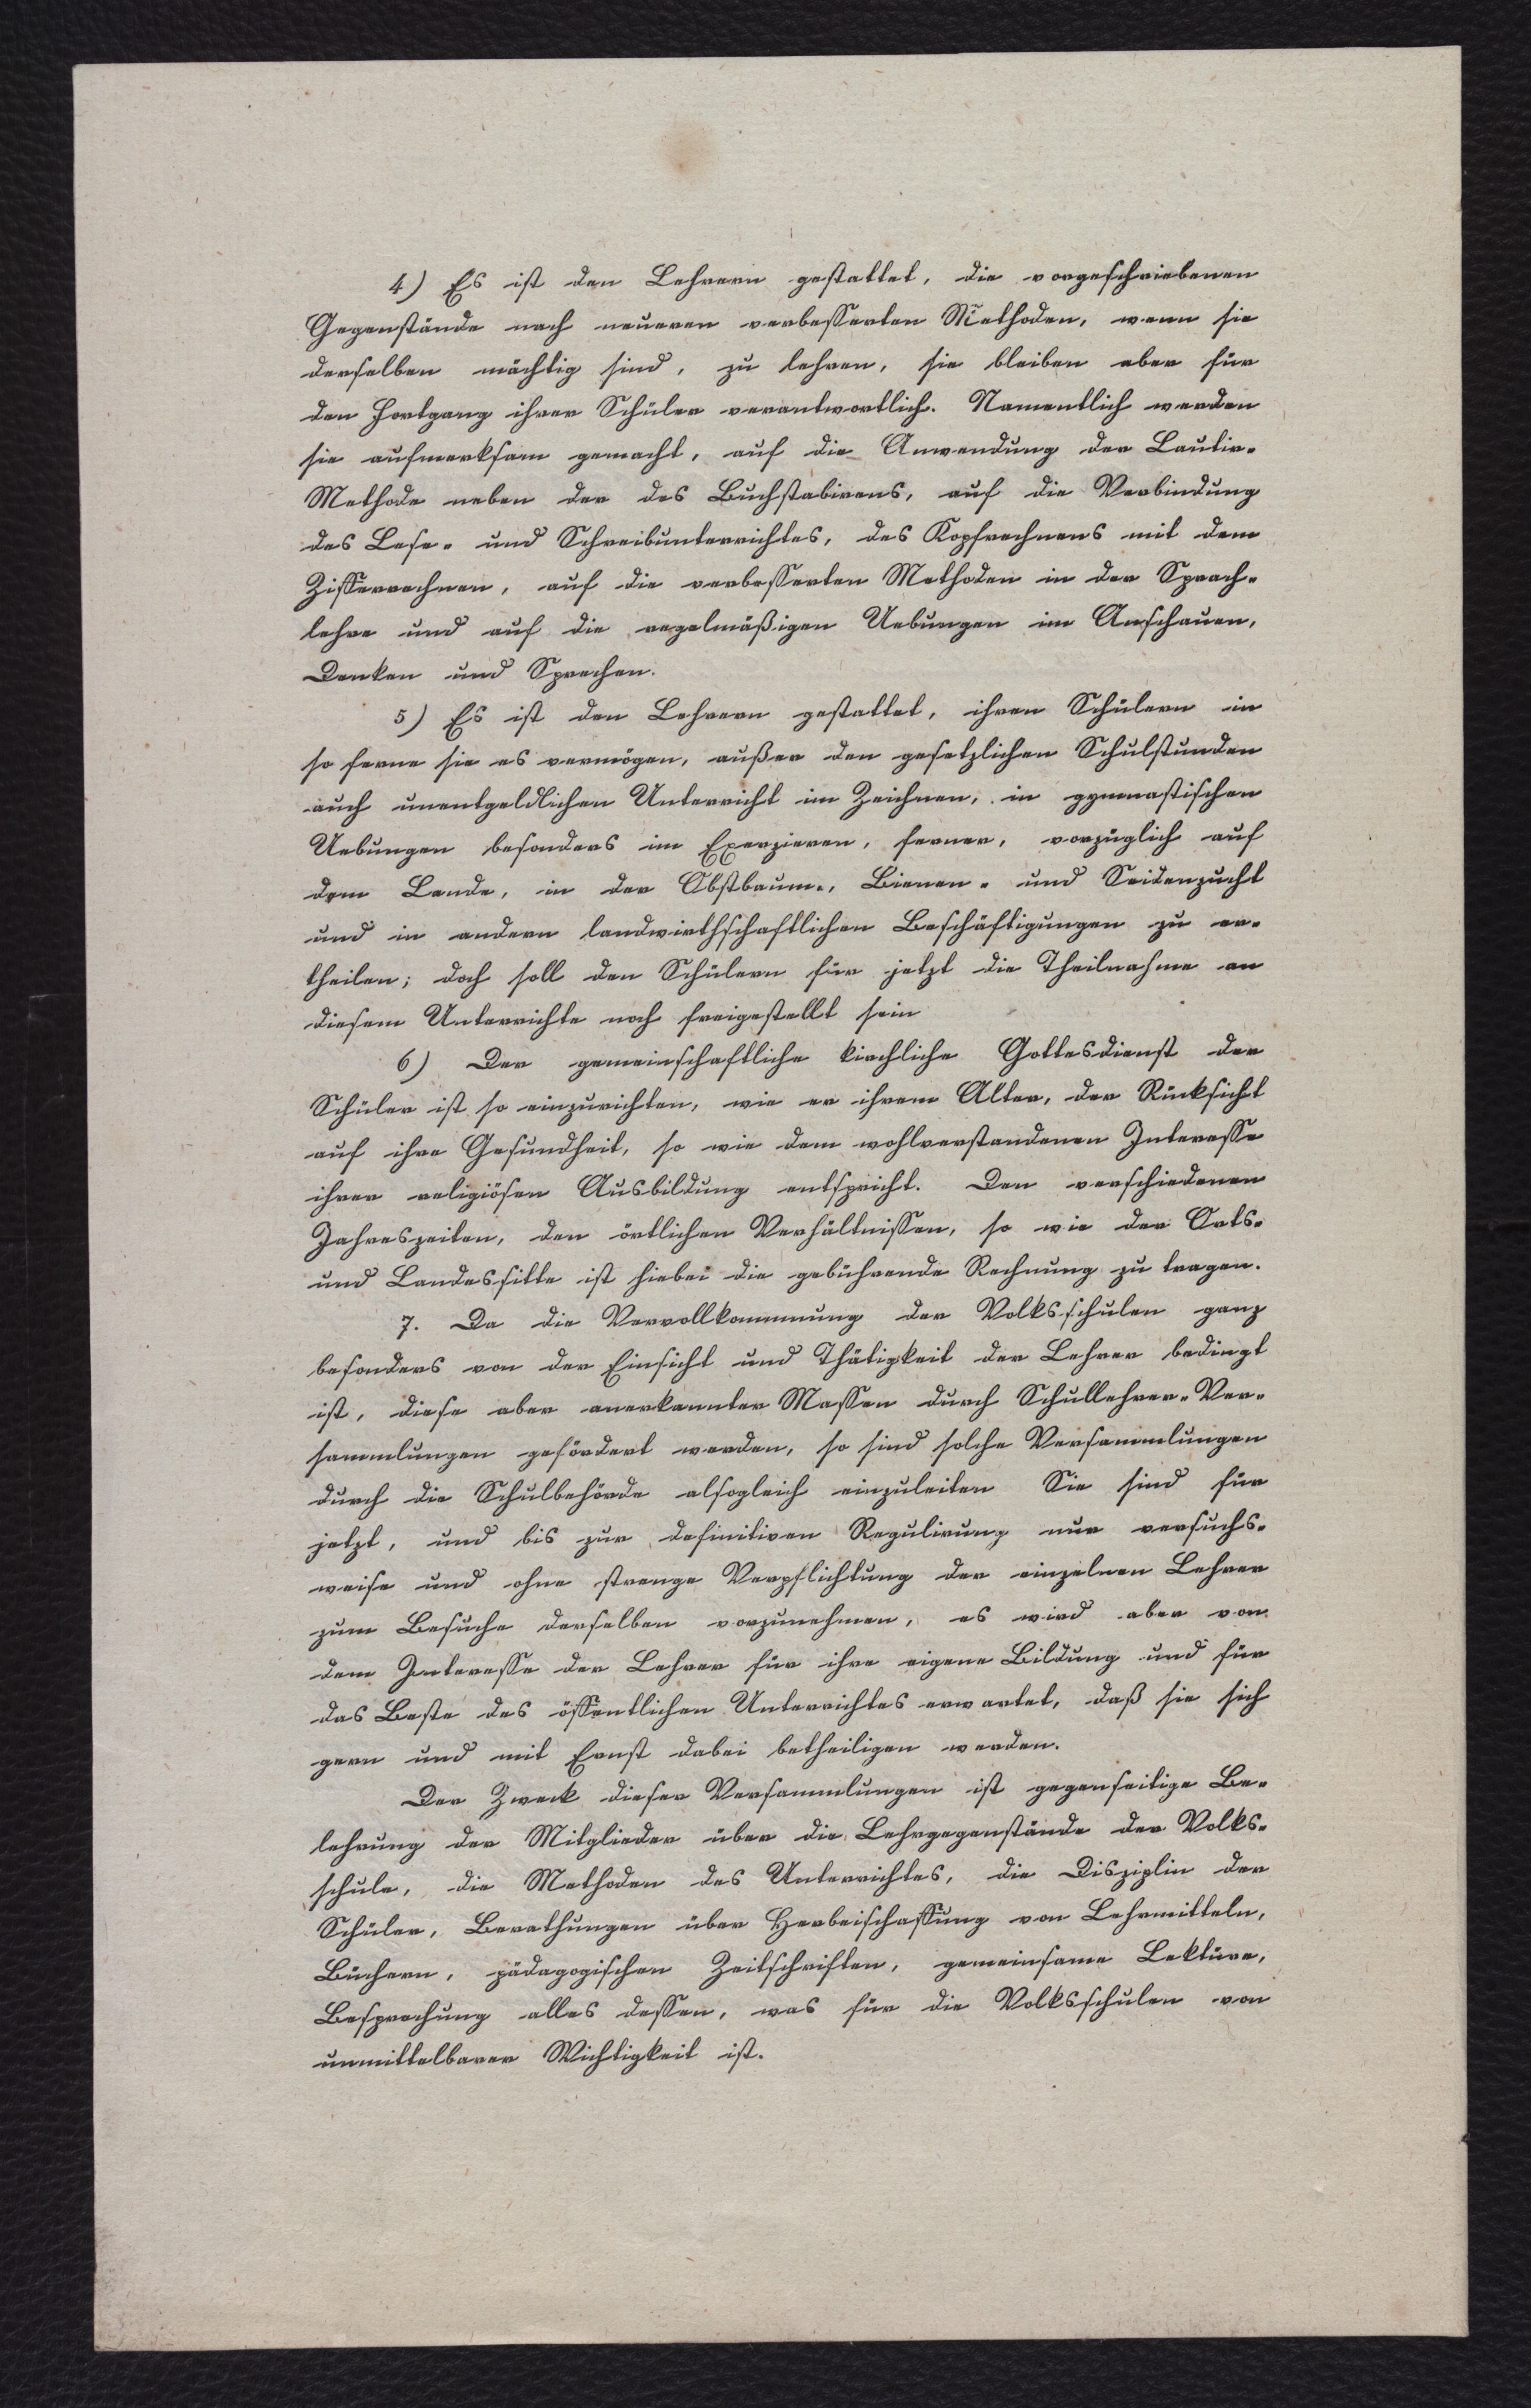 4) Es ist den Lehrern gestattet, die vorgeschriebenen
Gegenstände nach neueren verbesserten Methoden, wenn sie
derselben mächtig sind, zu lehren, sie bleiben aber für
den Fortgang ihrer Schüler verantwortlich. Namentlich werden
sie aufmerksam gemacht, auf die Anwendung der Lautir-
Methode neben der des Buchstabirens, auf die Verbindung
des Lese- und Schreibunterrichtes, des Kopfrechnens mit dem
Zifferrechnen, auf die verbesserten Methoden in der Sprach-
lehre und auf die regelmäßigen Uebungen im Anschauen,
Denken und Sprechen.
5) Es ist den Lehrern gestattet, ihren Schülern in
so ferne sie es vermögen, außer den gesetzlichen Schulstunden
auch unentgeldlichen Unterricht im Zeichnen, in gymnastischen
Uebungen besonders im Exerzieren, ferner, vorzüglich auf
dem Lande, in der Obstbaum-, Bienen- und Seidenzucht
und in andern landwirthschaftlichen Beschäftigungen zu er-
theilen; doch soll den Schülern für jetzt die Theilnahme an
diesem Unterrichte noch freigestellt sein
6) Der gemeinschaftliche kirchliche Gottesdienst der
Schüler ist so einzurichten, wie er ihrem Alter, der Rücksicht
auf ihre Gesundheit, so wie dem wohlverstandenen Interesse
ihrer religiösen Ausbildung entspricht. Den verschiedenen
Jahreszeiten, den örtlichen Verhältnissen, so wie der Orts-
und Landessitte ist hiebei die gebührende Rechnung zu tragen.
7. Da die Vervollkommnung der Volksschulen ganz
besonders von der Einsicht und Thätigkeit der Lehrer bedingt
ist, diese aber anerkannter Massen durch Schullehrer-Ver-
sammlungen gefördert werden, so sind solche Versammlungen
durch die Schulbehörde alsogleich einzuleiten Sie sind für
jetzt, und bis zur definitiven Regulirung nur versuchs-
weise und ohne strenge Verpflichtung der einzelnen Lehrer
zum Besuche derselben vorzunehmen, es wird aber von
dem Interesse der Lehrer für ihre eigene Bildung und für
das Beste des öffentlichen Unterrichtes erwartet, daß sie sich
gern und mit Ernst dabei betheiligen werden.
Der Zweck dieser Versammlungen ist gegenseitige Be-
lehrung der Mitglieder über die Lehrgegenstände der Volks-
schule, die Methoden des Unterrichtes, die Disziplin der
Schüler, Berathungen über Herbeischaffung von Lehrmitteln,
Büchern, pädagogischen Zeitschriften, gemeinsame Lektüre,
Besprechung alles dessen, was für die Volksschulen von
unmittelbarer Wichtigkeit ist.